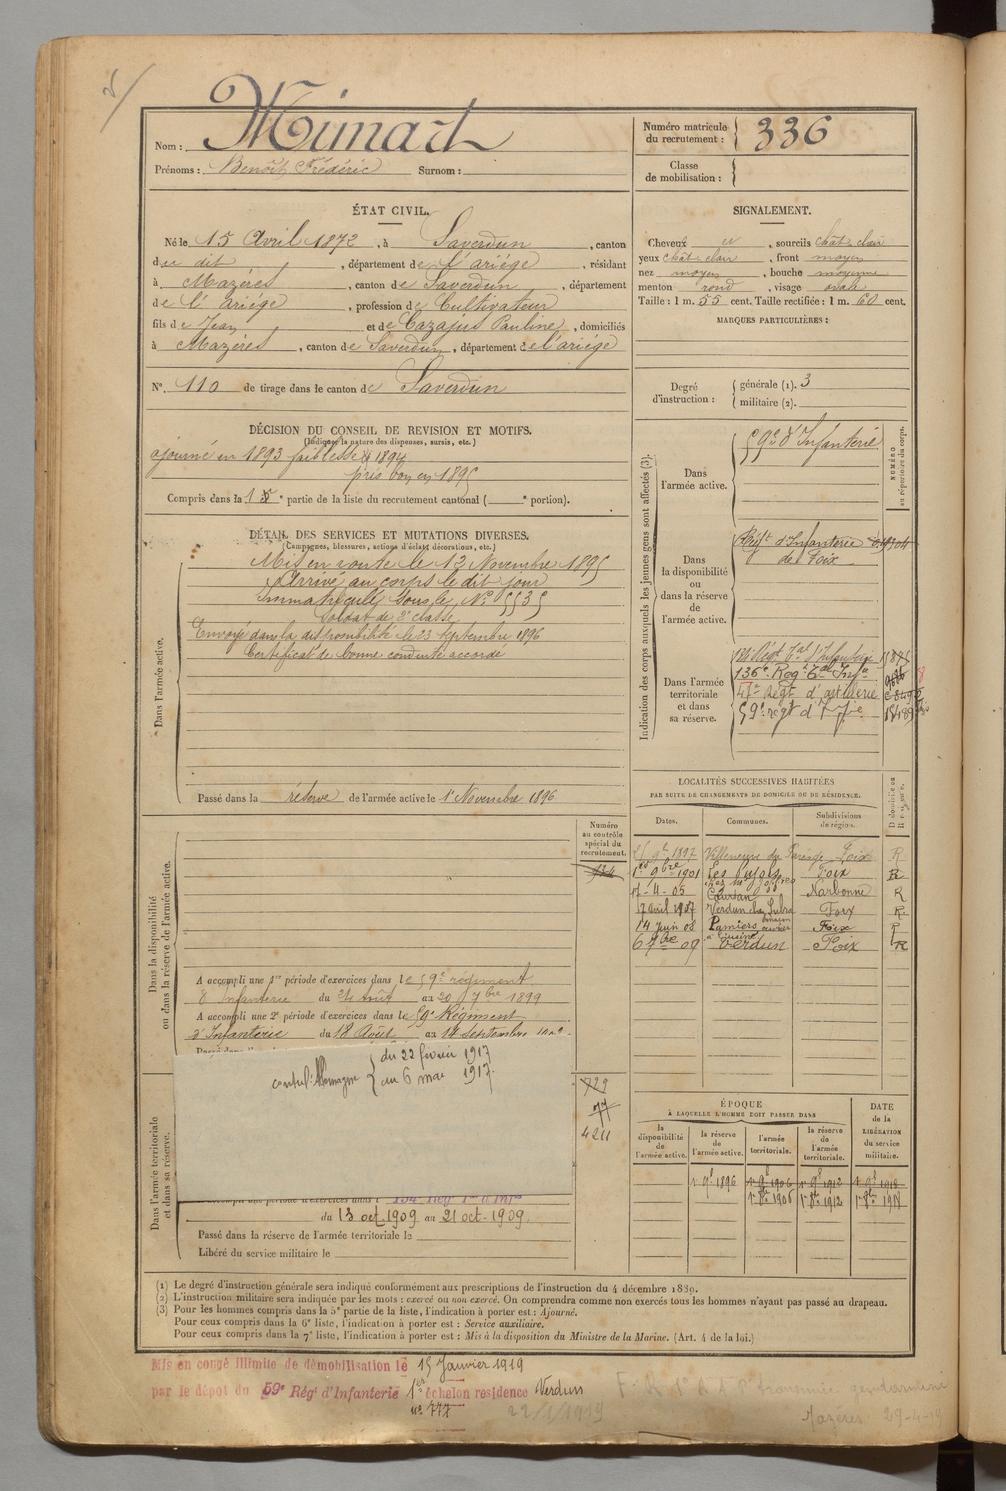 Nom : Mimart
Prénoms : Benoît Frédéric Surnom :
Numéro matricule du recrutement : 336
Classe de mobilisation :
ÉTAT CIVIL.
Né le 15 Avril 1872, à Saverdun, canton
du dit, département de l'ariége, résidant
à Mazéres, canton de Saverdun, département
de l'ariége, profession de Cultivateur
fils de Jean et de Cazajus Pauline, domiciliés
à Mazéres, canton de Saverdun, département de l'ariege
N°. 110 de tirage dans le canton de Saverdun
SIGNALEMENT.
Cheveux et, sourcils chat. clair
yeux chat. clair, front moyen
nez moyen, bouche moyenne
menton rond, visage ovale
Taille : 1 m. 55 cent. Taille rectifiée : 1 m. 60 cent.
MARQUES PARTICULIÈRES :
Degré d'instruction : générale (1). 3
militaire (2).
DÉCISION DU CONSEIL DE REVISION ET MOTIFS.
(Indiquer la nature des dispenses, sursis, etc.)
ajourné en 1893 faiblesse & 1894
pris bon en 1895
Compris dans la 1 partie de la liste du recrutement cantonal ( portion).
DÉTAIL DES SERVICES ET MUTATIONS DIVERSES.
(Campagnes, blessures, actions d'éclat, décorations, etc.)
Dans l'armée active.
Mis en route le 13 Novembre 1895
Arrivé au corps le dit jour
Immatriculé sous le N° 5535
Soldat de 2e classe
Envoyé dans la disponibilité le 23 septembre 1896
Certificat de bonne conduite accordé
Passé dans la réserve de l'armée active le 1r Novembre 1896
Indication des corps auxquels les jeunes gens sont affectés (3).
NUMÉRO au répertoire du corps.
Dans l'armée active.
59e d'Infanterie
Dans la disponibilité ou dans la réserve de l'armée active.
Régt d'Infanterie
de Foix
Dans l'armée territoriale et dans sa réserve.
136e Régt Tal Infie
régt d'artillerie
59e régt d'Infie
LOCALITÉS SUCCESSIVES HABITÉES
PAR SUITE DE CHANGEMENTS DE DOMICILE OU DE RÉSIDENCE.
Dates. Communes. Subdivisions de région.
1897 Villeneuve du Paréage Foix R
1er 9bre 1901 Les Pujols Foix R
17-4-05 Coursan Narbonne R
17 avril 1907 Verdun Foix R
14 juin 08 Pamiers Foix R
6 7bre 09 Verdun Foix R
Dans la disponibilité ou dans la réserve de l'armée active.
Numéro au contrôle spécial du recrutement.
A accompli une 1re période d'exercices dans le 59e régiment
d'Infanterie du 24 Août au 20 7bre 1899
A accompli une 2e période d'exercices dans le 59e Régiment
d'Infanterie du 18 Août au 14 Septembre
contre l'Allemagne du 22 février 1917
au 6 mai 1917.
729
77
4211
Dans l'armée territoriale et dans sa réserve.
du 13 oct 1909 au 21 oct-1909.
Passé dans la réserve de l'armée territoriale le
Libéré du service militaire le
ÉPOQUE
À LAQUELLE L'HOMME DOIT PASSER DANS
la disponibilité de l'armée active.
la réserve de l'armée active.
l'armée territoriale.
la réserve de l'armée territoriale.
DATE de la LIBÉRATION du service militaire.
1r 9b 1896 1r 9b 1906 1r 9b 1912 1r 9b 1918
1r 8b 1906 1r 8b 1912 1r 8b 1918
(1) Le degré d'instruction générale sera indiqué conformément aux prescriptions de l'instruction du 4 décembre 1889.
(2) L'instruction militaire sera indiquée par les mots : exercé ou non exercé. On comprendra comme non exercés tous les hommes n'ayant pas passé au drapeau.
(3) Pour les hommes compris dans la 5e partie de la liste, l'indication à porter est : Ajourné.
Pour ceux compris dans la 6e liste, l'indication à porter est : Service auxiliaire.
Pour ceux compris dans la 7e liste, l'indication à porter est : Mis à la disposition du Ministre de la Marine. (Art. 4 de la loi.)
Mis en congé illimité de démobilisation le 15 Janvier 1919
par le dépôt du 59e Régt d'Infanterie 1er échelon résidence Verdun
n° 777
22/1/1919
gendarmerie
Mazéres 29-4-19